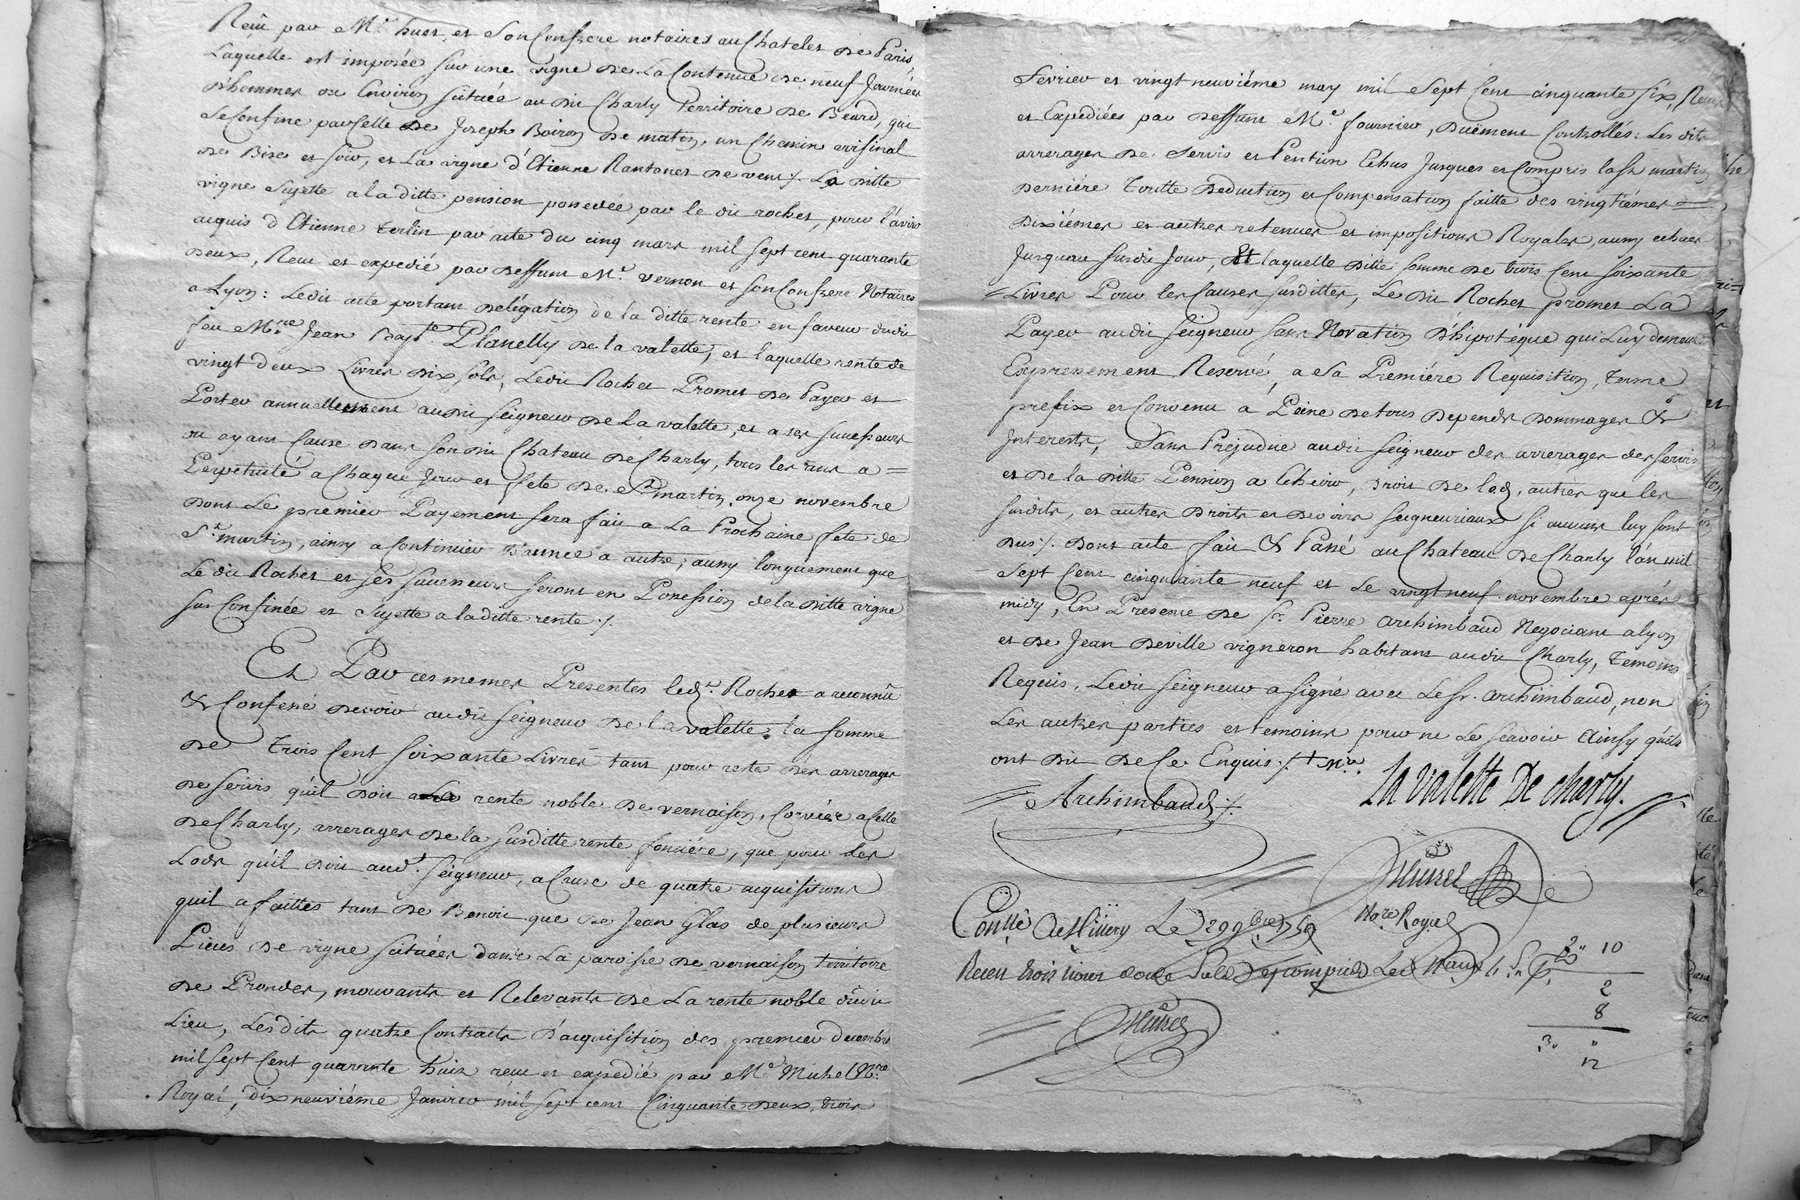 Reçû par Me. huet et son Confrere notaires au Chatelet de Paris,
Laquelle est imposée sur une vigne de La Contenue de neuf Journées
d'hommes ou Environ scituée au dit Charly Territoire de Beard, qui
se Confine par Celle de Joseph Boiron de matin, un Chemin visinal
de Bise et soir, et La vigne d'Etienne Rantonet de vent /. La ditte
vigne Sujette a la ditte pension possedée par le dit rochet, pour l'avoir
acquis d'Etienne terlin par acte du cinq mars mil sept cent quarante
deux, Recu et expedié par deffunt Me. vernon et son Confrere Notaires
a Lyon: Ledit acte portant delégation de la ditte rente en faveur dudit
feu Mre. Jean Bapte. Planelly de la valette, et laquelle rente de
vingt deux Livres dix sols, Ledit Rochet Promet de Payer et
Porter annuellement audit seigneur de La valette, et a ses successeurs
ou ayant Cause dans son dit Chateau de Charly, tous les ans a =
Perpetuité a Chaque Jour et fete de St. martin onze novembre
dont Le premier Payement sera fait a La Prochaine fete de
St. martin, ainsy a Continuer d'année a autre, aussy longuement que
Le dit Rochet et ses successeurs seront en Possession de la ditte vigne
sus Confinée et sujette a la ditte rente /.
Et Par ces memes Presentes ledt. Rochet a reconnû
& Confessé devoir audit seigneur de la valette la somme
de Trois Cent soixante Livres tant pour reste des arrerages
de servis qu'il doit a La rente noble de vernaison, Corvées a Celle
de Charly, arrerages de la susditte rente fonciére, que pour les
Lods qu'il doit audt. seigneur, a Cause de quatre acquisitions
quil a faittes tant de Benoit que de Jean Glas de plusieurs
Pieces de vigne scituées dans La paroisse de vernaison territoire
de Prondes, mouvants et Relevants de La rente noble dudit
Lieu, Lesdits quatre Contracts d'acquisition des premier decembre
mil sept Cent quarante huit recu et expedié par Me. Michel Nre.
Royal, dix neuviéme Janvier mil sept cent Cinquante deux, trois
fevrier et vingt neuviéme may mil Sept Cent cinquante six, Recus
et Expediées par deffunt Me. fournier, duëment Controllés: Les dits
arrerages de servis et Pention Echus Jusques et Compris la St. martin
derniére Toutte deduction et Compensation faitte des vingtiémes =
dixiémes et autres retenues et impositions Royales, aussy echues
Jusqu'au susdit Jour, Et laquelle ditte somme de trois Cent soixante
= Livres Pour les Causes susdittes, Le dit Rochet promet La
Payer audit seigneur sans Novation d'hipotéque qui Luy demeure
Expressement Reservé, a sa Premiére Requisition, terme
prefix et Convenu a Peine de tous depends dommages &
Interests, sans Préjudice audit seigneur des arrerages des servis
et de la ditte Pension a Echoir, droit de lods, autres que les
susdits, et autres droits et devoirs seigneuriaux si aucuns luy sont
dus /. dont acte fait & Passé au Chateau de Charly l'an mil
Sept Cent cinquante neuf et Le vingt neuf novembre aprés
midy, En Presence de sr. Pierre archimbaud Negociant a lyon
et de Jean deville vigneron habitant audit Charly, Temoins
Requis. Ledit seigneur a signé avec Le sr. archimbaud, non
Les autres parties et temoins pour ne Le sçavoir Ainsy qu'ils
ont dit de Ce Enquis /.
Archimbaud /. La valette De charly.
Nore. Royal
Conllé A Millery Le 29 9bre 1759
Recu trois livres douze sols y compris Led
2" 10
2
8
3" "
12